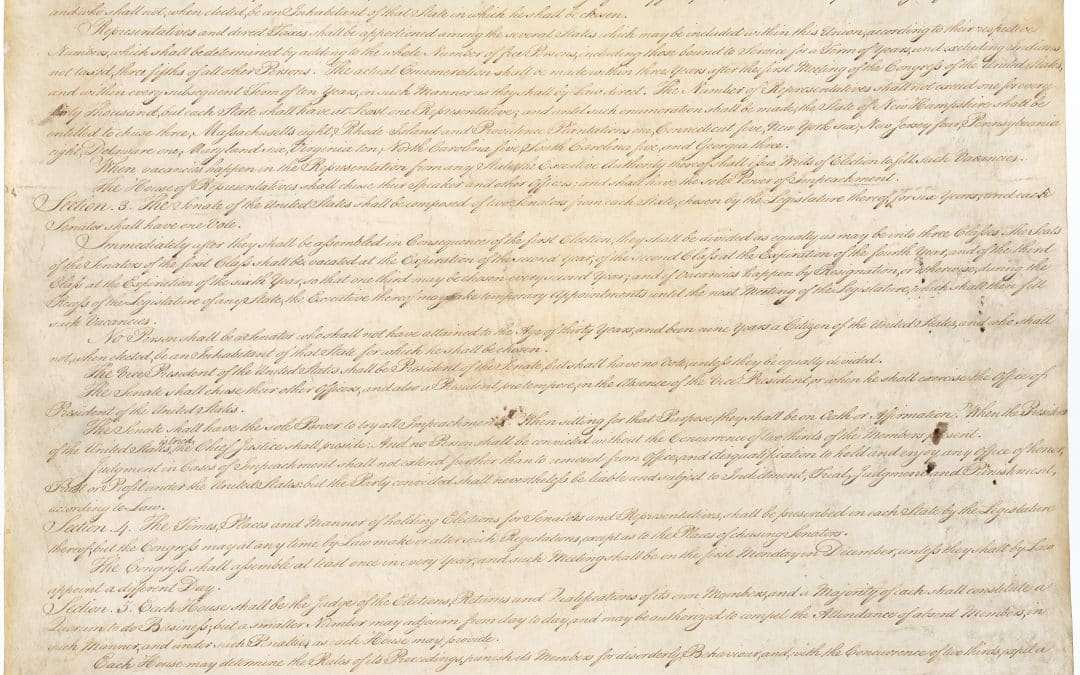 and who shall not, when elected, be an Inhabitant of that State in which he shall be chosen.
Representatives and direct Taxes shall be apportioned among the several States which may be included within this Union, according to their respective
Numbers, which shall be determined by adding to the whole Number of free Persons, including those bound to Service for a Term of Years, and excluding Indians
not taxed, three fifths of all other Persons. The actual Enumeration shall be made within three Years after the first Meeting of the Congress of the United States,
and within every subsequent Term of ten Years, in such Manner as they shall by Law direct. The Number of Representatives shall not exceed one for every
thirty Thousand, but each State shall have at Least one Representative; and until such enumeration shall be made, the State of New Hampshire shall be
entitled to chuse three, Massachusetts eight, Rhode Island and Providence Plantations one, Connecticut five, New York six, New Jersey four, Pennsylvania
eight, Delaware one, Maryland six, Virginia ten, North Carolina five, South Carolina five, and Georgia three.
When vacancies happen in the Representation from any State, the Executive Authority thereof shall issue Writs of Election to fill such Vacancies.
The House of Representatives shall chuse their Speaker and other Officers; and shall have the sole Power of Impeachment.
Section. 3. The Senate of the United States shall be composed of two Senators from each State, chosen by the Legislature thereof, for six Years; and each
Senator shall have one Vote.
Immediately after they shall be assembled in Consequence of the first Election, they shall be divided as equally as may be into three Classes. The Seats
of the Senators of the first Class shall be vacated at the Expiration of the second Year, of the second Class at the Expiration of the fourth Year, and of the third
Class at the Expiration of the sixth Year, so that one third may be chosen every second Year; and if Vacancies happen by Resignation, or otherwise, during the
Recess of the Legislature of any State, the Executive thereof may make temporary Appointments until the next Meeting of the Legislature, which shall then fill
such Vacancies.
No Person shall be a Senator who shall not have attained to the Age of thirty Years, and been nine Years a Citizen of the United States, and who shall
not, when elected, be an Inhabitant of that State for which he shall be chosen.
The Vice President of the United States shall be President of the Senate, but shall have no Vote, unless they be equally divided.
The Senate shall chuse their other Officers, and also a President pro tempore, in the Absence of the Vice President, or when he shall exercise the Office of
President of the United States.
The Senate shall have the sole Power to try all Impeachments. When sitting for that Purpose, they shall be on Oath or Affirmation. When the President
of the United States is tried, the Chief Justice shall preside: And no Person shall be convicted without the Concurrence of two thirds of the Members present.
Judgment in Cases of Impeachment shall not extend further than to removal from Office, and disqualification to hold and enjoy any Office of honor,
Trust or Profit under the United States: but the Party convicted shall nevertheless be liable and subject to Indictment, Trial, Judgment and Punishment,
according to Law.
Section. 4. The Times, Places and Manner of holding Elections for Senators and Representatives, shall be prescribed in each State by the Legislature
thereof; but the Congress may at any time by Law make or alter such Regulations, except as to the Places of chusing Senators.
The Congress shall assemble at least once in every Year, and such Meeting shall be on the first Monday in December, unless they shall by Law
appoint a different Day.
Section. 5. Each House shall be the Judge of the Elections, Returns and Qualifications of its own Members, and a Majority of each shall constitute a
Quorum to do Business; but a smaller Number may adjourn from day to day, and may be authorized to compel the Attendance of absent Members, in
such Manner, and under such Penalties as each House may provide.
Each House may determine the Rules of its Proceedings, punish its Members for disorderly Behaviour, and, with the Concurrence of two thirds, expel a